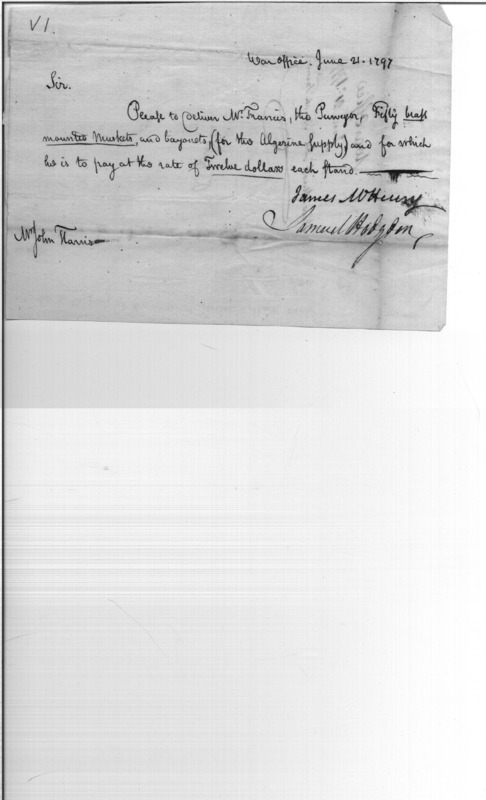 VI.
War office. June 21. 1797
Sir.
Please to deliver Mr. Francis, the Purveyor, Fifty brass
mounted Muskets, and bayonets, (for the Algerine Supply) and for which
he is to pay at the rate of Twelve dollars each stand.
James McHenry
Samuel Hodgdon
Mr John Harris